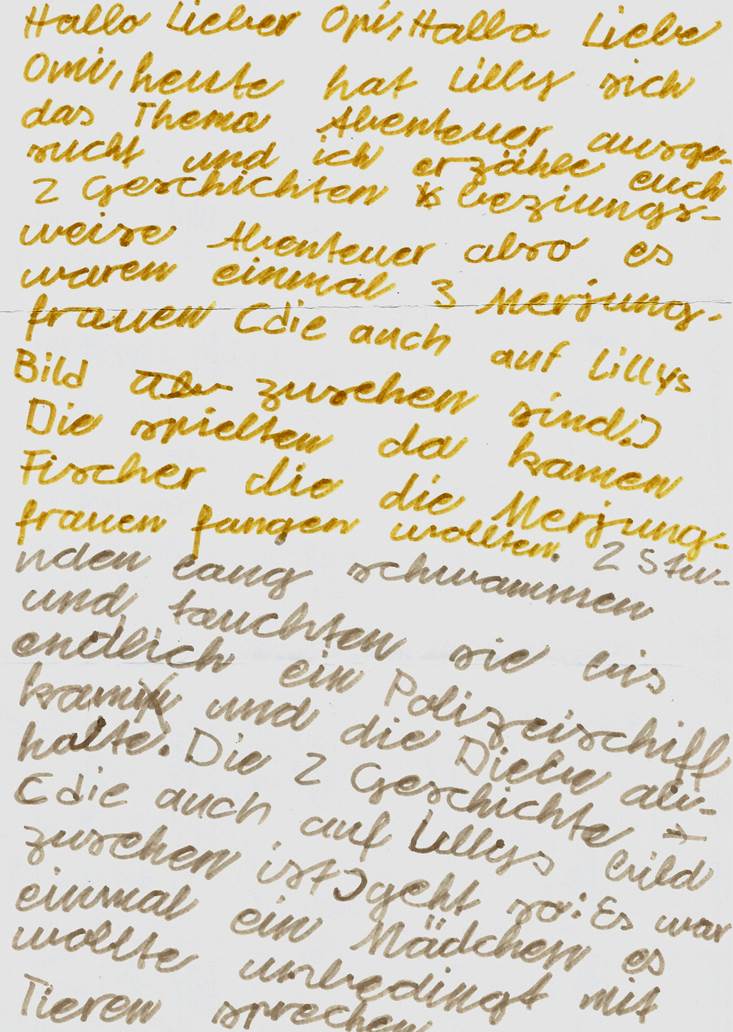 Hallo Lieber Opi, Hallo Liebe
Omi, heute hat Lilly sich
das Thema Abenteuer ausge-
sucht und ich erzähle euch
2 Geschichten beziungs-
weise Abenteuer also es
waren einmal 3 Merjung-
frauen (die auch auf Lillys
Bild zusehen sind.)
Die spielten da kamen
Fischer die die Merjung-
frauen fangen wollten. 2 Stu-
nden lang schwammen
und tauchten sie bis
endlich ein Polizeischiff
kam und die Diebe ab-
halte. Die 2 Geschichte
(die auch auf Lillys bild
zusehen ist) geht so: Es war
einmal ein Mädchen es
wollte unbedingt mit
Tieren sprechen